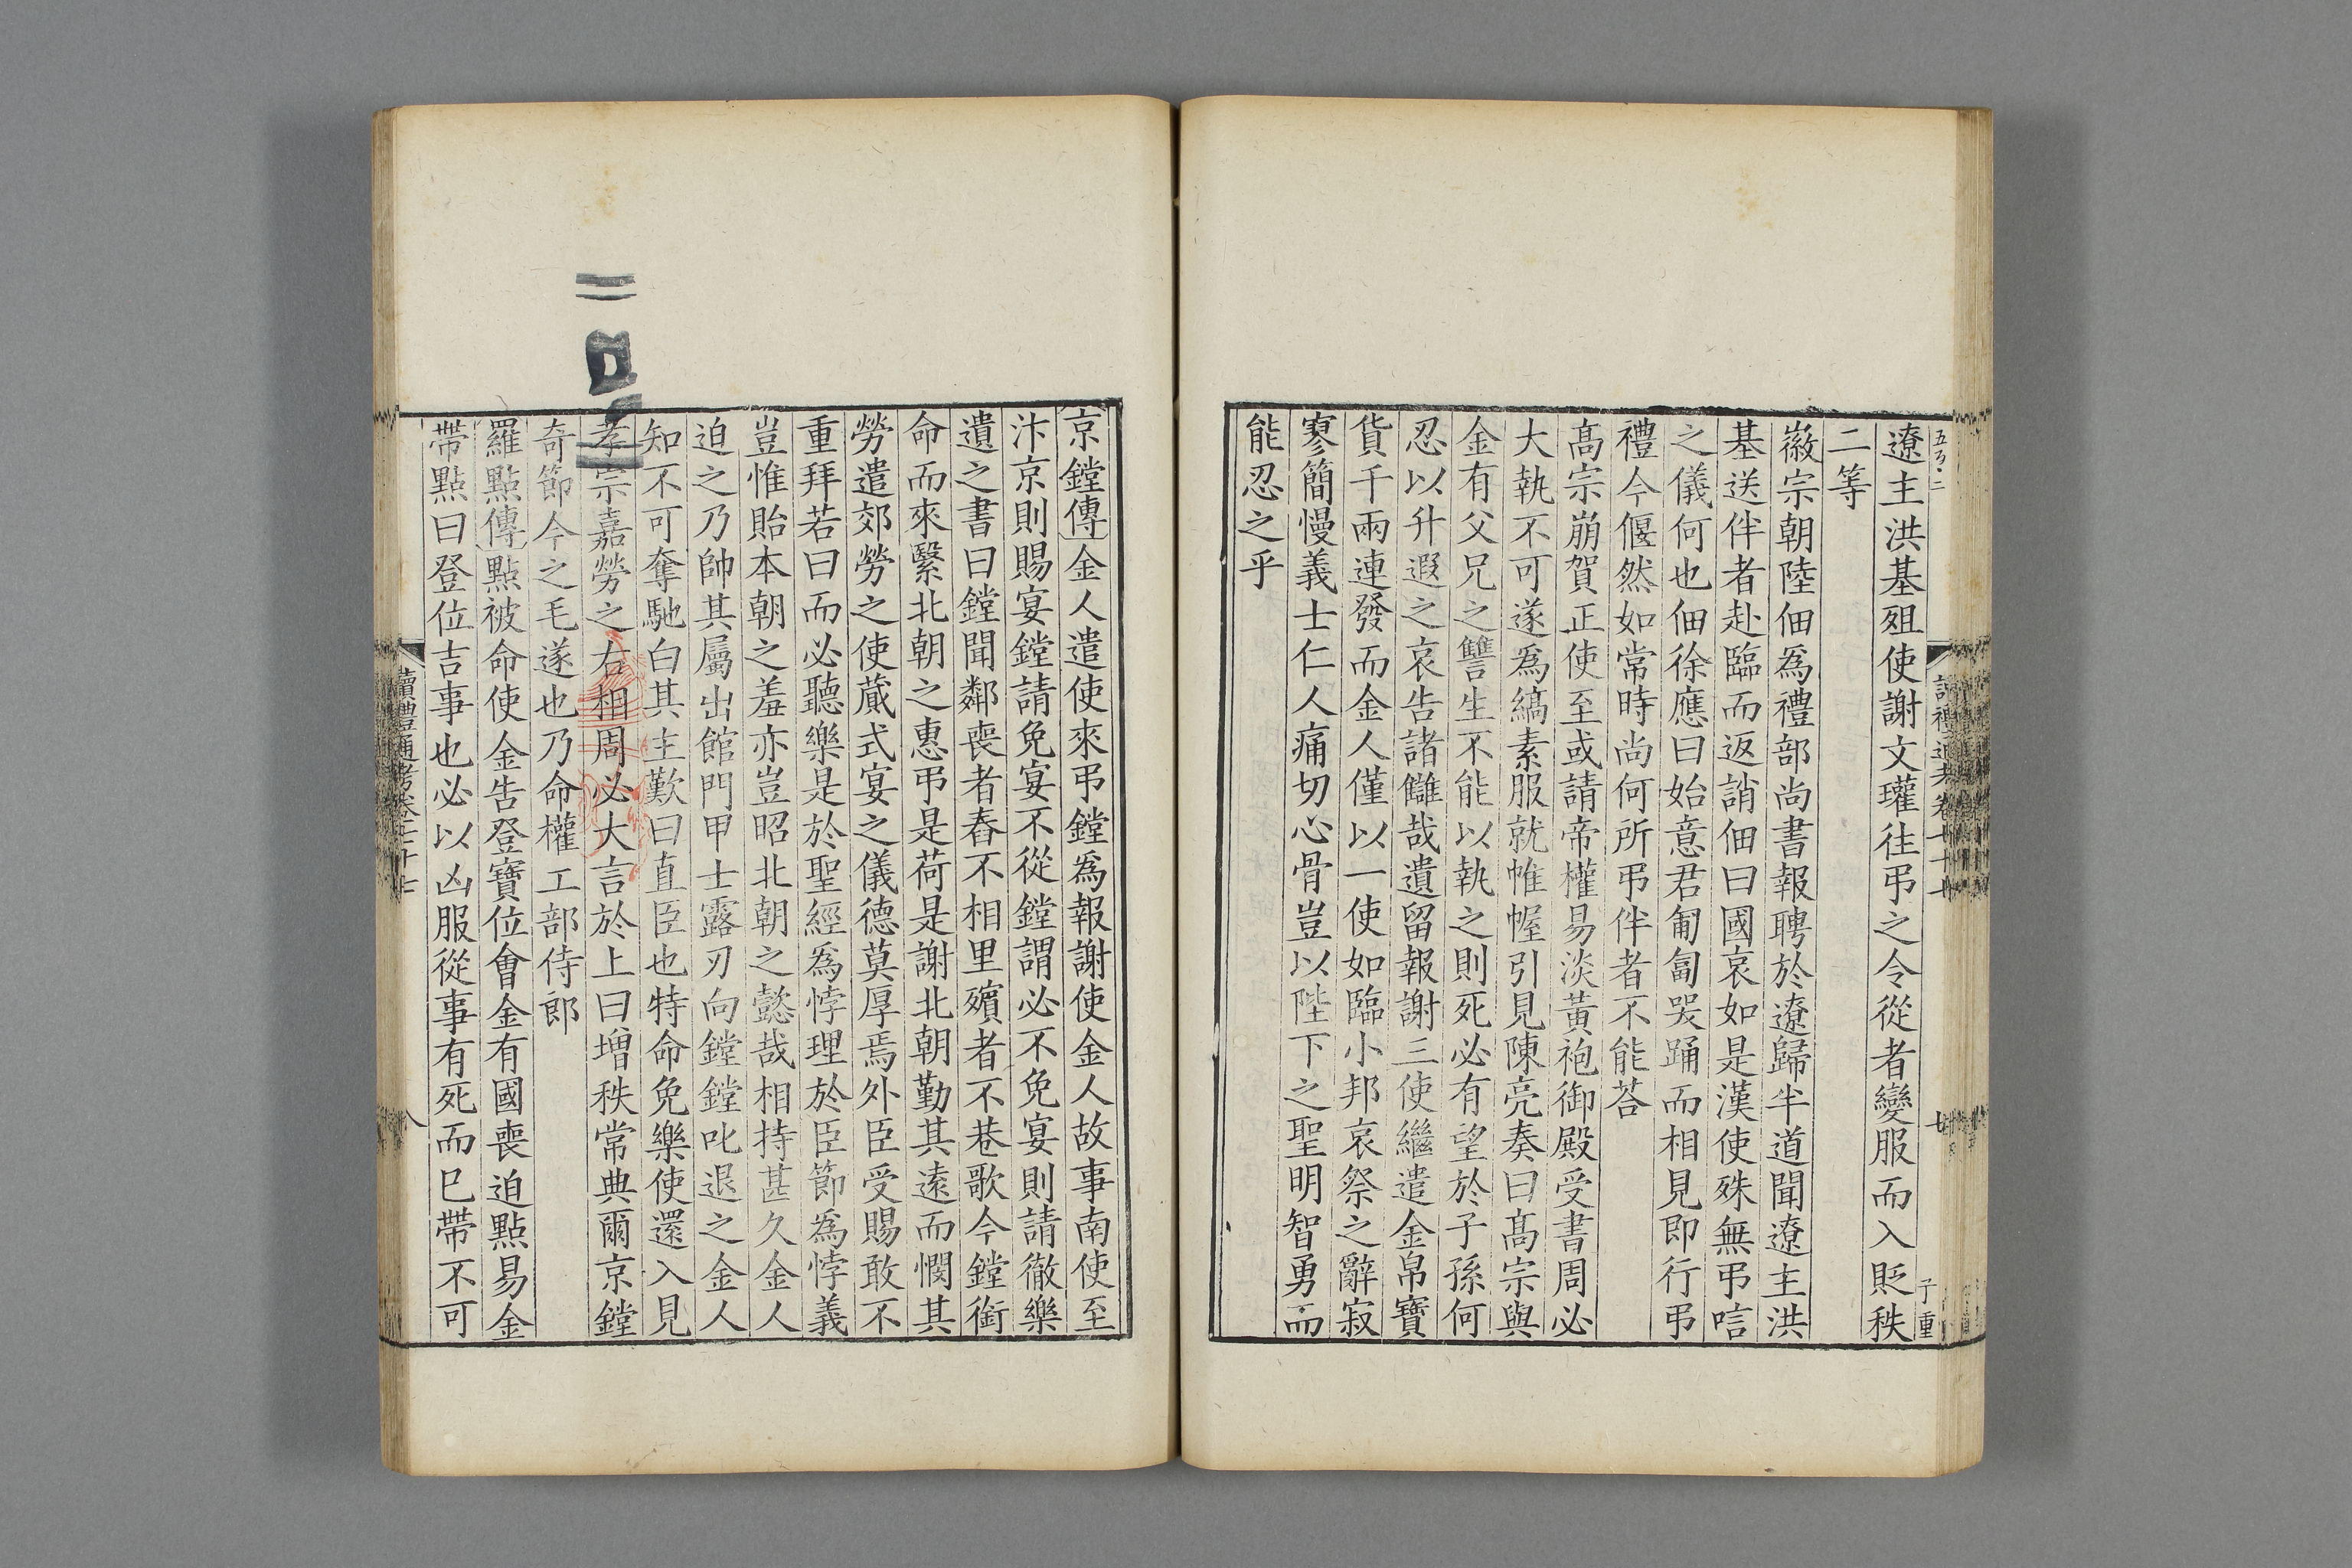 遼主洪基殂使謝文瓘往弔之令從者變服而入貶秩
二等
徽宗朝陸佃爲禮部尚書報聘於遼歸半道聞遼主洪
基送伴者赴臨而返誚佃曰國哀如是漢使殊無弔唁
之儀何也佃徐應曰始意君匍匐哭踊而相見即行弔
禮今偃然如常時尚何所弔伴者不能荅
高宗崩賀正使至或請帝權易淡黃袍御殿受書周必
大執不可遂爲縞素服就帷幄引見陳亮奏曰高宗與
金有父兄之讐生不能以執之則死必有望於子孫何
忍以升遐之哀告諸讎哉遺留報謝三使繼遣金帛寶
貨千兩連發而金人僅以一使如臨小邦哀祭之辭寂
寥簡慢義士仁人痛切心骨豈以陛下之聖明智勇而
能忍之乎
子重
京鏜傳金人遣使來弔鏜爲報謝使金人故事南使至
汴京則賜宴鏜請免宴不從鏜謂必不免宴則請徹樂
遺之書曰鏜聞鄰喪者舂不相里殯者不巷歌今鏜銜
命而來繄北朝之惠弔是荷是謝北朝勤其遠而憫其
勞遣郊勞之使蕆式宴之儀德莫厚焉外臣受賜敢不
重拜若曰而必聽樂是於聖經爲悖理於臣節爲悖義
豈惟貽本朝之羞亦豈昭北朝之懿哉相持甚久金人
迫之乃帥其屬出館門甲士露刃向鏜鏜叱退之金人
知不可奪馳白其主歎曰直臣也特命免樂使還入見
孝宗嘉勞之右相周必大言於上曰增秩常典爾京鏜
奇節今之毛遂也乃命權工部侍郎
羅點傳點被命使金告登寶位會金有國喪迫點易金
帶點曰登位吉事也必以凶服從事有死而已帶不可
讀禮通考卷三十七
八